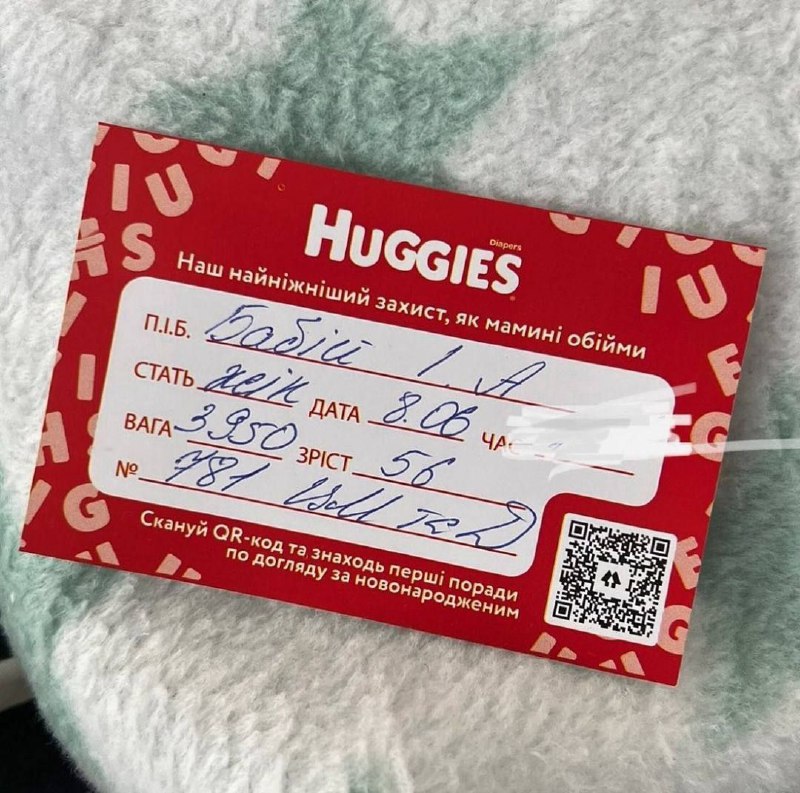 HUGGIES
Diapers
Наш найніжніший захист, як мамині обійми
П.І.Б. Бабій І. А
СТАТЬ жін ДАТА 8.06 ЧАС
ВАГА 3950 ЗРІСТ 56
№ 781
Скануй QR-код та знаходь перші поради
по догляду за новонародженим